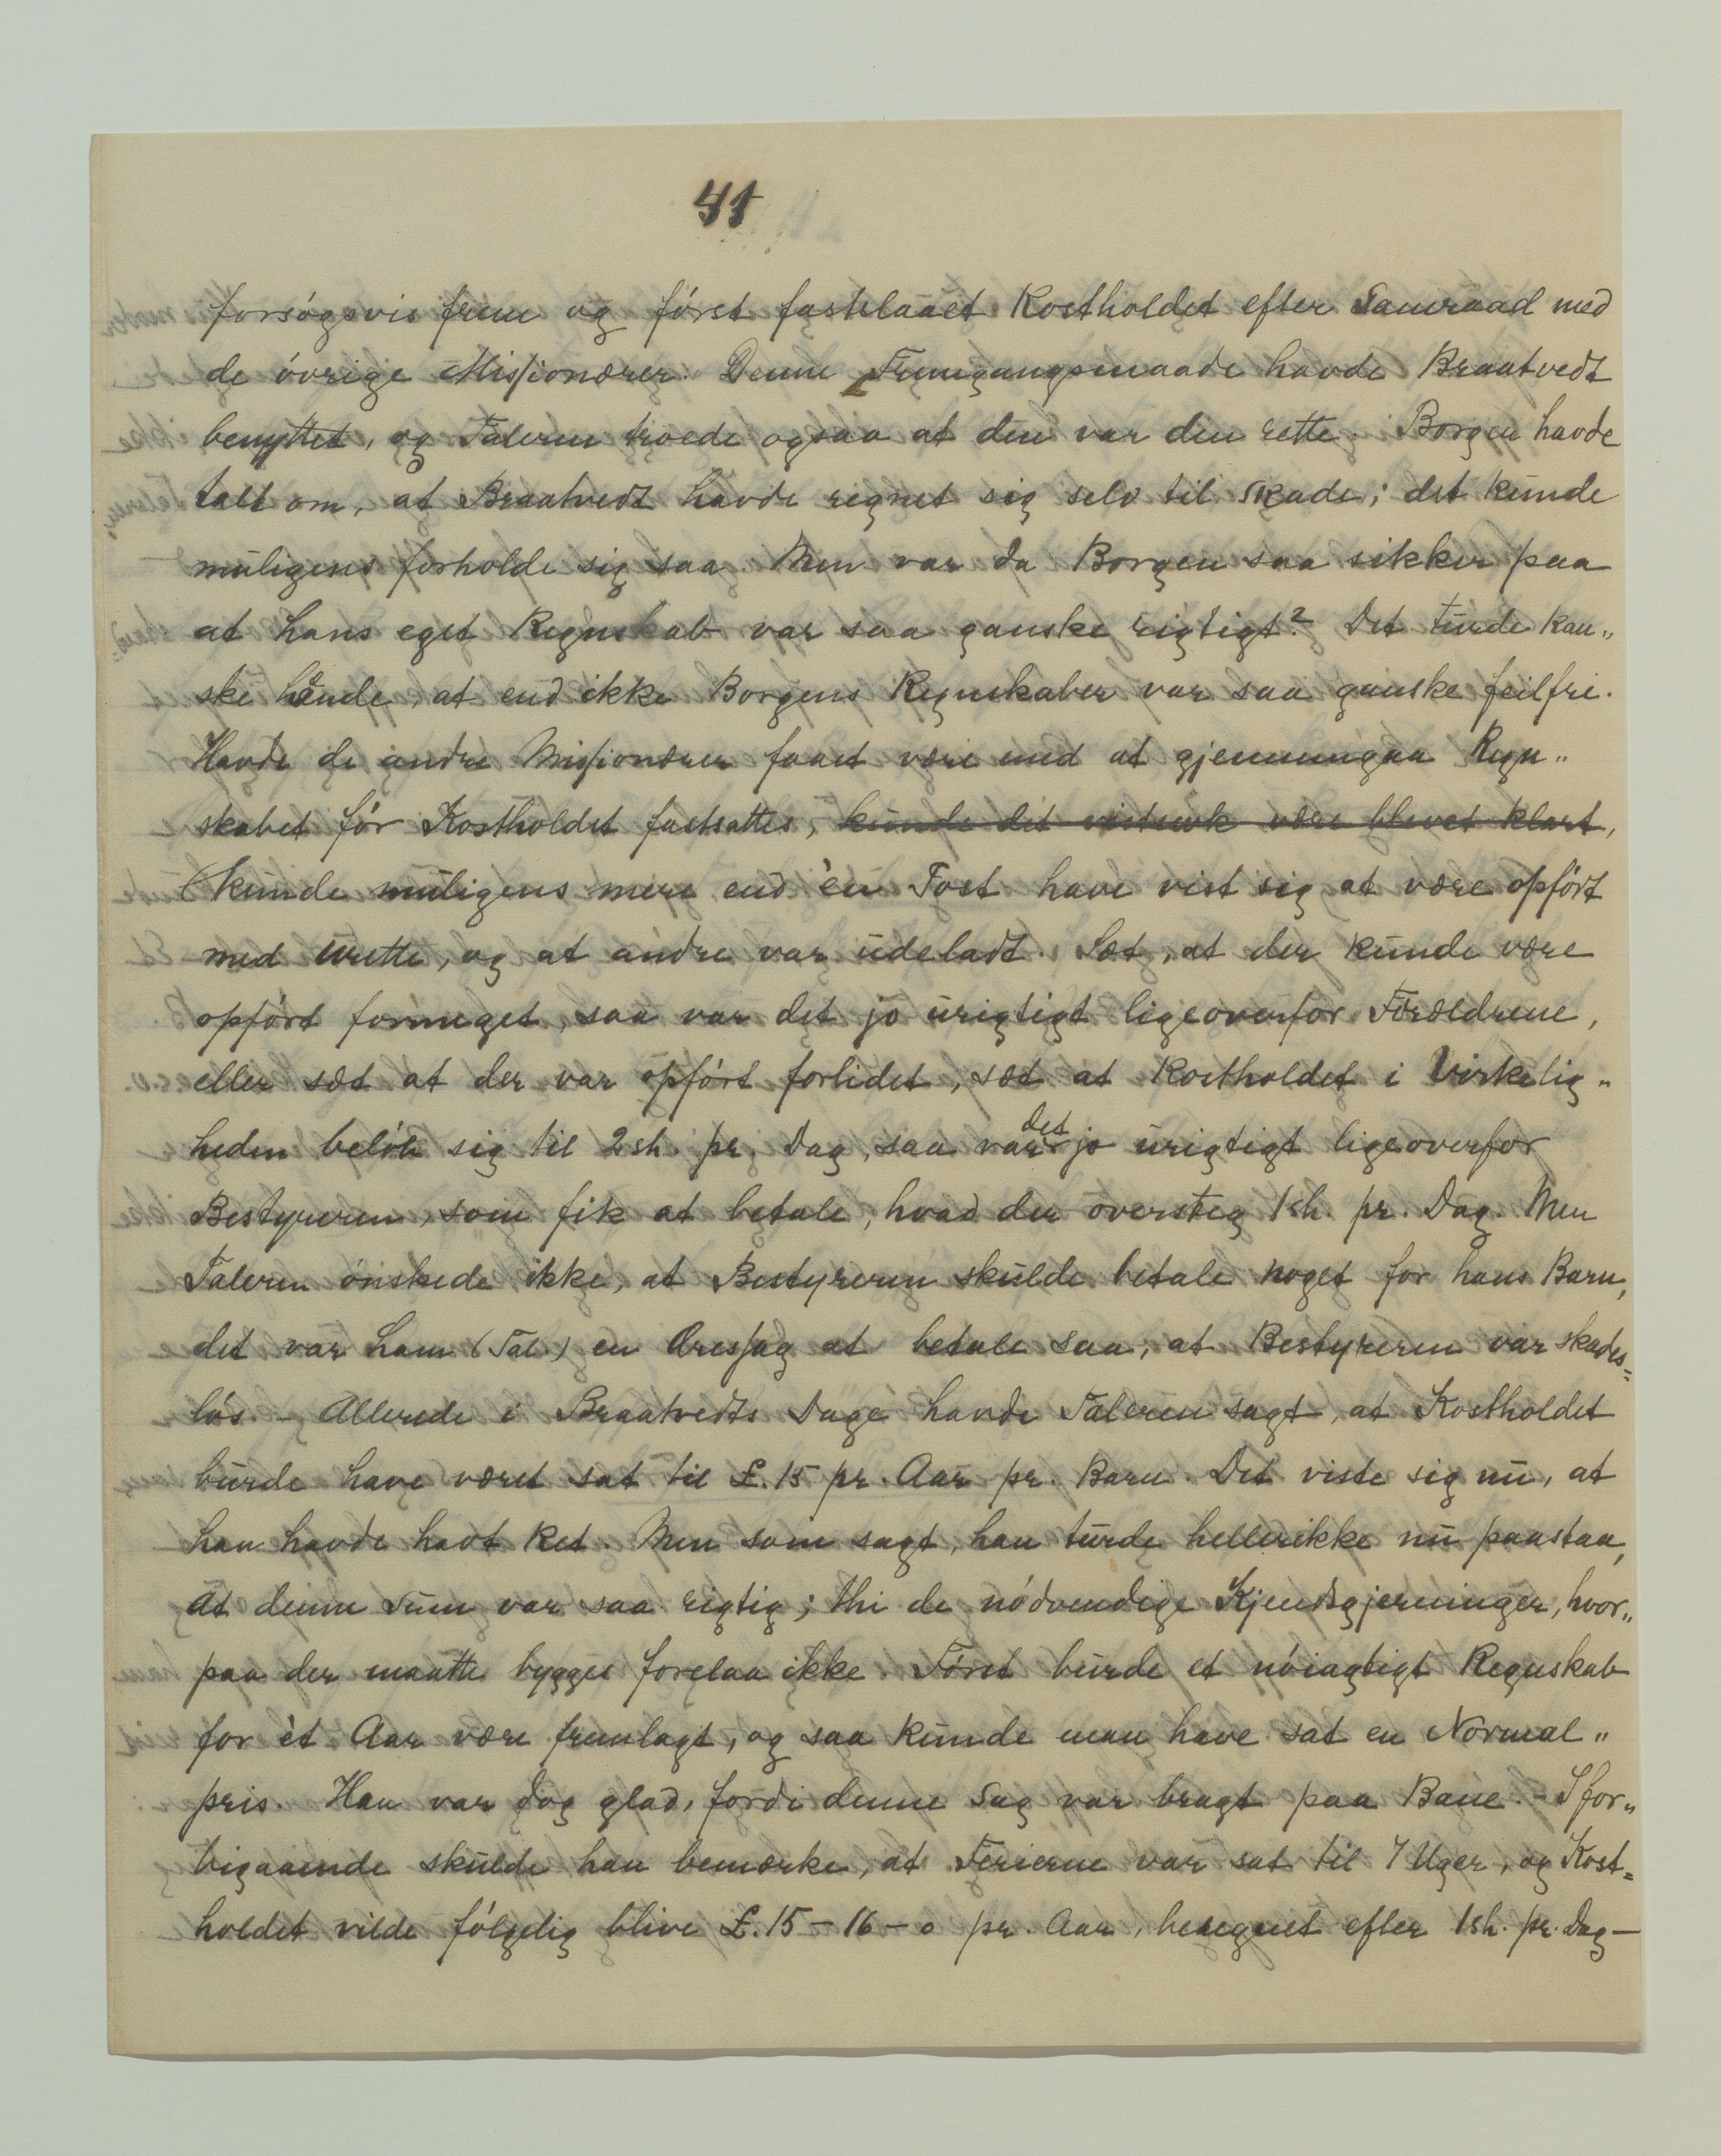 41
forsógsvis frem og fórst fastslaaet Kostholdet efter Samraad med
de óvrige Missionærer. Denne Fremgangsmaade havde Braatvedt
benyttet, og Taleren troede ogsaa at den var den rette. Borgen havde
talt om, at Braatvedt havde regnet sig selv til skade; det kunde
muligens forholde sig saa. Men var da Borgen saa sikker paa
at hans eget Regnskab var saa ganske rigtigt? Det turde kan„
ske hænde, at end ikke Borgens Regnskaber var saa ganske feilfri.
Havde de andre Missionærer faaet være med at gjennemgaa Regn„
skabet fór Kostholdet fastsattes, kunde det vistnok være blevet klart,
kunde muligens mere end èn Post have vist sig at være opfórt
med urette, og at andre var udeladt. Sæt, at der kunde være
opfórt formeget, saa var det jo urigtigt ligeoverfor Forældrene,
eller sæt at der var opfórt forlidet, sæt at Kostholdet i Virkelig„
heden belób sig til 2 sh. pr. Dag, saa var det jo urigtigt ligeoverfor
Bestyreren, som fik at betale, hvad der oversteg 1 sh. pr. Dag. Men
Taleren ónskede ikke, at Bestyreren skulde betale noget for hans Barn,
det var ham (Tal.) en Æressag at betale saa, at Bestyreren var skades=
lós. – Allerede i Braatvedts Dage havde Taleren sagt, at Kostholdet
burde have været sat til £. 15 pr. Aar pr. Barn. Det viste sig nu, at
han havde havt Ret. Men som sagt, han turde hellerikke nu paastaa,
at denne Sum var saa rigtig; thi de nódvendige Kjendsgjerninger, hvor„
paa der maatte bygges forelaa ikke. Fórst burde et nóiagtigt Regnskab
for èt Aar være fremlagt, og saa kunde man have sat en Normal„
pris. Han var dog glad, fordi denne Sag var bragt paa Bane. – I for„
bigaaende skulde han bemærke, at Ferierne var sat til 7 Uger, og Kost=
holdet vilde fólgelig blive £. 15 – 16 – 0 pr. Aar, beregnet efter 1 sh. pr. Dag –